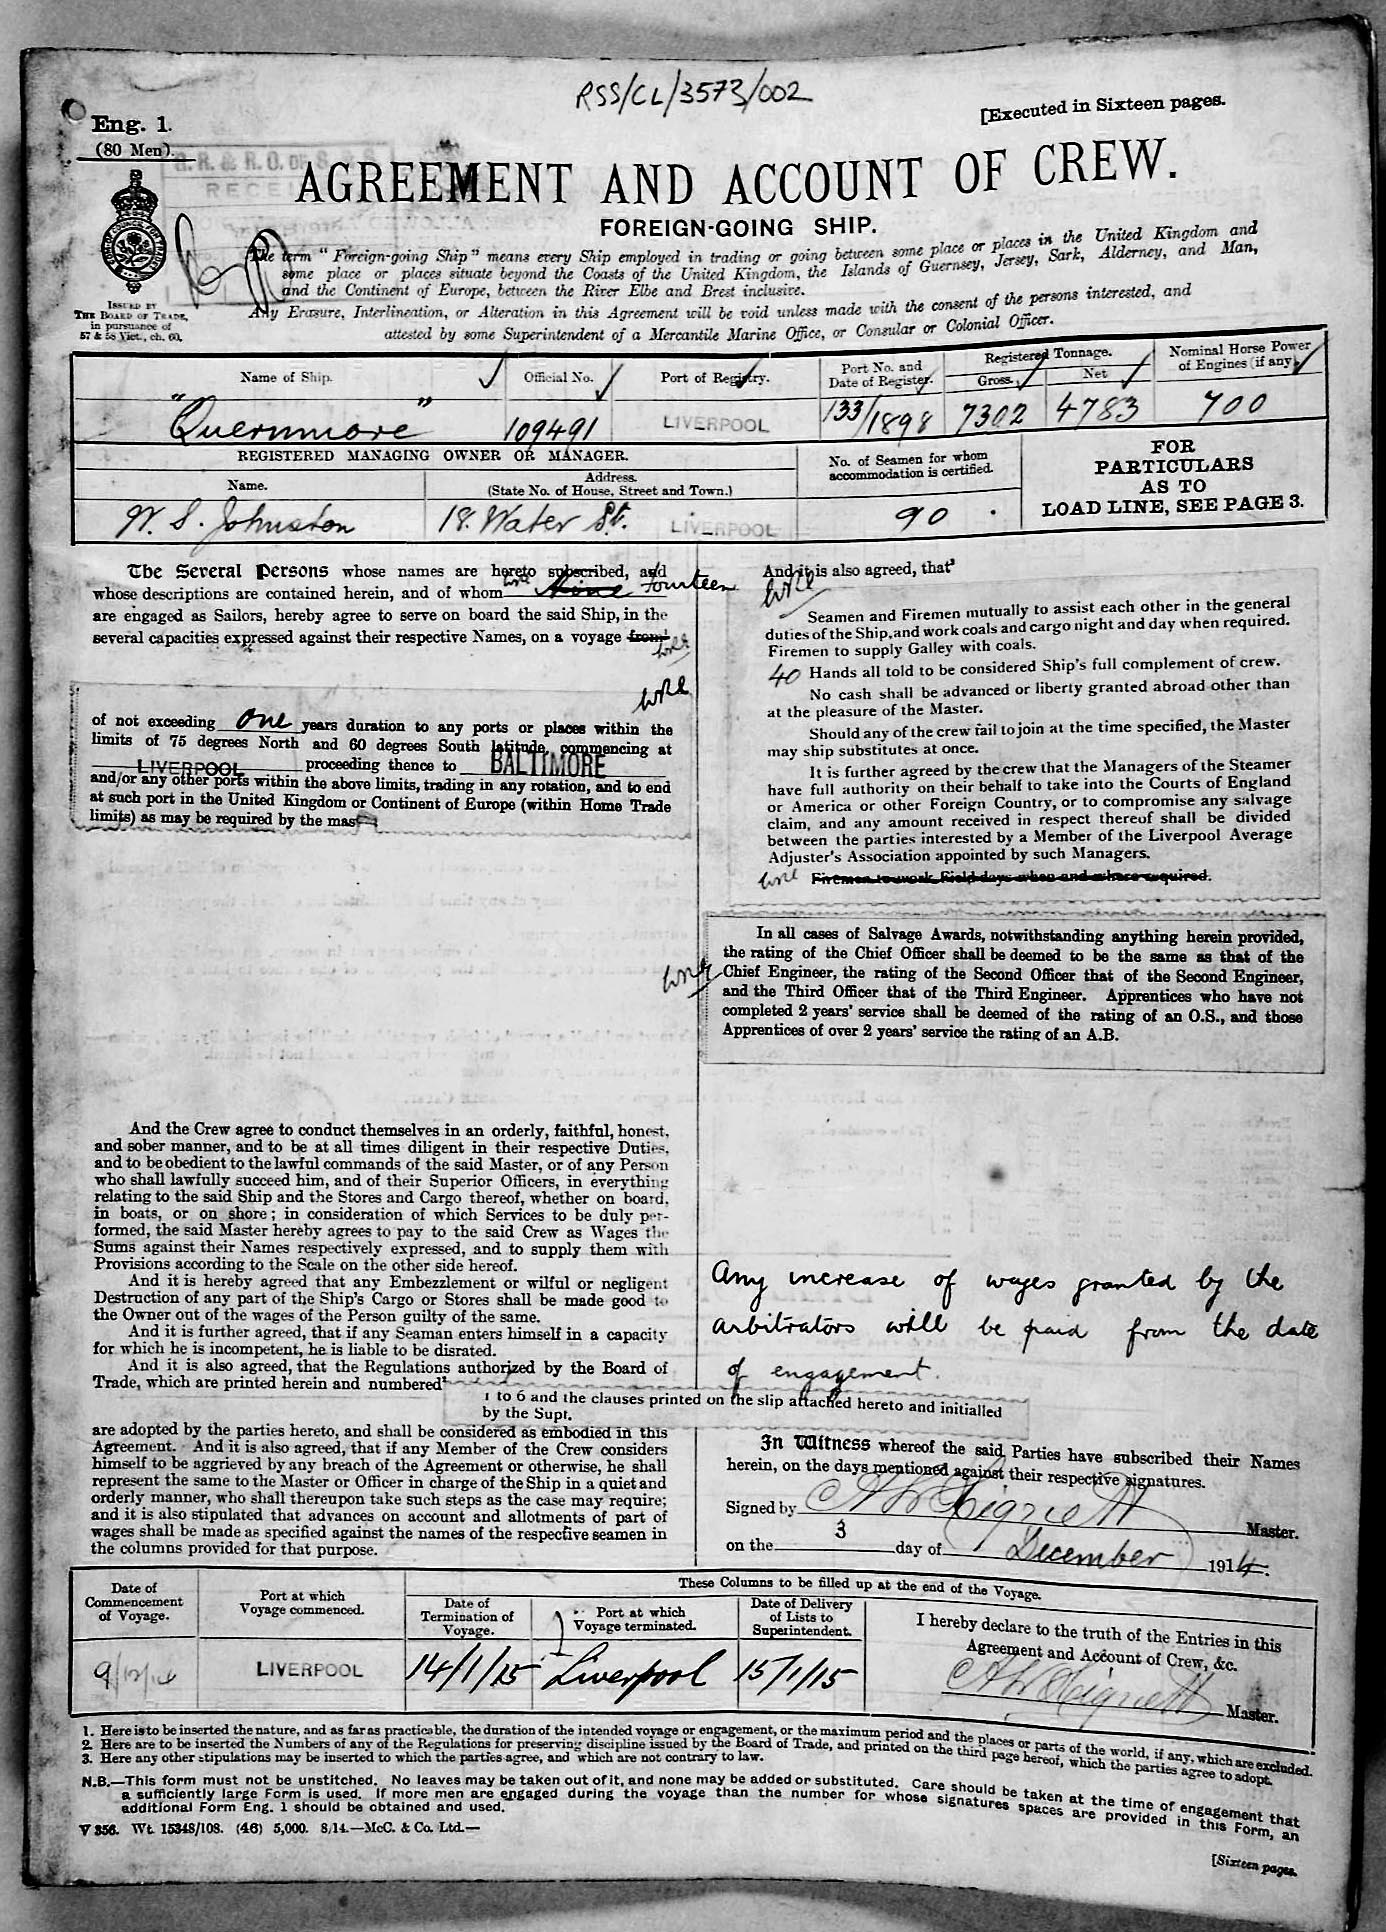 RSS/CL/3573/002
[Executed in Sixteen pages.
Eng. 1.
(80 Men).
AGREEMENT AND ACCOUNT OF CREW.
FOREIGN-GOING SHIP.
The term "Foreign-going Ship" means every Ship employed in trading or going between some place or places in the United Kingdom and
some place or places situate beyond the Coasts of the United Kingdom, the Islands of Guernsey, Jersey, Sark, Alderney, and Man,
and the Continent of Europe, between the River Elbe and Brest inclusive.
Any Erasure, Interlineation, or Alteration in this Agreement will be void unless made with the consent of the persons interested, and
attested by some Superintendent of a Mercantile Marine Office, or Consular or Colonial Officer.
ISSUED BY
THE BOARD OF TRADE,
in pursuance of
57 & 58 Vict., ch. 60.
Name of Ship.
Official No.
Port of Registry.
Port No. and
Date of Register.
Registered Tonnage.
Gross.
Net
Nominal Horse Power
of Engines (if any)
"Quernmore"
109491
LIVERPOOL
133/1898
7302
4783
700
REGISTERED MANAGING OWNER OR MANAGER.
Name.
Address.
(State No. of House, Street and Town.)
No. of Seamen for whom
accommodation is certified.
FOR
PARTICULARS
AS TO
LOAD LINE, SEE PAGE 3.
W. S. Johnston
18. Water St.
LIVERPOOL
90
The Several Persons whose names are hereto subscribed, and
whose descriptions are contained herein, and of whom Nine Fourteen
are engaged as Sailors, hereby agree to serve on board the said Ship, in the
several capacities expressed against their respective Names, on a voyage from¹
of not exceeding One years duration to any ports or places within the
limits of 75 degrees North and 60 degrees South latitude, commencing at
LIVERPOOL proceeding thence to BALTIMORE
and/or any other ports within the above limits, trading in any rotation, and to end
at such port in the United Kingdom or Continent of Europe (within Home Trade
limits) as may be required by the mas
And the Crew agree to conduct themselves in an orderly, faithful, honest,
and sober manner, and to be at all times diligent in their respective Duties,
and to be obedient to the lawful commands of the said Master, or of any Person
who shall lawfully succeed him, and of their Superior Officers, in everything
relating to the said Ship and the Stores and Cargo thereof, whether on board,
in boats, or on shore; in consideration of which Services to be duly per-
formed, the said Master hereby agrees to pay to the said Crew as Wages the
Sums against their Names respectively expressed, and to supply them with
Provisions according to the Scale on the other side hereof.
And it is hereby agreed that any Embezzlement or wilful or negligent
Destruction of any part of the Ship's Cargo or Stores shall be made good to
the Owner out of the wages of the Person guilty of the same.
And it is further agreed, that if any Seaman enters himself in a capacity
for which he is incompetent, he is liable to be disrated.
And it is also agreed, that the Regulations authorized by the Board of
Trade, which are printed herein and numbered²
1 to 6 and the clauses printed on the slip attached hereto and initialled
by the Supt.
are adopted by the parties hereto, and shall be considered as embodied in this
Agreement. And it is also agreed, that if any Member of the Crew considers
himself to be aggrieved by any breach of the Agreement or otherwise, he shall
represent the same to the Master or Officer in charge of the Ship in a quiet and
orderly manner, who shall thereupon take such steps as the case may require;
and it is also stipulated that advances on account and allotments of part of
wages shall be made as specified against the names of the respective seamen in
the columns provided for that purpose.
And it is also agreed, that³
Seamen and Firemen mutually to assist each other in the general
duties of the Ship, and work coals and cargo night and day when required.
Firemen to supply Galley with coals.
40 Hands all told to be considered Ship's full complement of crew.
No cash shall be advanced or liberty granted abroad other than
at the pleasure of the Master.
Should any of the crew fail to join at the time specified, the Master
may ship substitutes at once.
It is further agreed by the crew that the Managers of the Steamer
have full authority on their behalf to take into the Courts of England
or America or other Foreign Country, or to compromise any salvage
claim, and any amount received in respect thereof shall be divided
between the parties interested by a Member of the Liverpool Average
Adjuster's Association appointed by such Managers.
Firemen to work Field days when and where required.
In all cases of Salvage Awards, notwithstanding anything herein provided,
the rating of the Chief Officer shall be deemed to be the same as that of the
Chief Engineer, the rating of the Second Officer that of the Second Engineer,
and the Third Officer that of the Third Engineer. Apprentices who have not
completed 2 years' service shall be deemed of the rating of an O.S., and those
Apprentices of over 2 years' service the rating of an A.B.
Any increase of wages granted by the
arbitrators will be paid from the date
of engagement.
In Witness whereof the said Parties have subscribed their Names
herein, on the days mentioned against their respective signatures.
Signed by Master.
on the 3 day of December 1914.
Date of
Commencement
of Voyage.
Port at which
Voyage commenced.
These Columns to be filled up at the end of the Voyage.
Date of
Termination of
Voyage.
Port at which
Voyage terminated.
Date of Delivery
of Lists to
Superintendent.
I hereby declare to the truth of the Entries in this
Agreement and Account of Crew, &c.
9/12/14
LIVERPOOL
14/1/15
Liverpool
15/1/15
Master.
1. Here is to be inserted the nature, and as far as practicable, the duration of the intended voyage or engagement, or the maximum period and the places or parts of the world, if any, which are excluded.
2. Here are to be inserted the Numbers of any of the Regulations for preserving discipline issued by the Board of Trade, and printed on the third page hereof, which the parties agree to adopt.
3. Here any other stipulations may be inserted to which the parties agree, and which are not contrary to law.
N.B.—This form must not be unstitched. No leaves may be taken out of it, and none may be added or substituted. Care should be taken at the time of engagement that
a sufficiently large Form is used. If more men are engaged during the voyage than the number for whose signatures spaces are provided in this Form, an
additional Form Eng. 1 should be obtained and used.
V 356. Wt. 15348/108. (46) 5,000. 8/14.—McC. & Co. Ltd.—
[Sixteen pages.